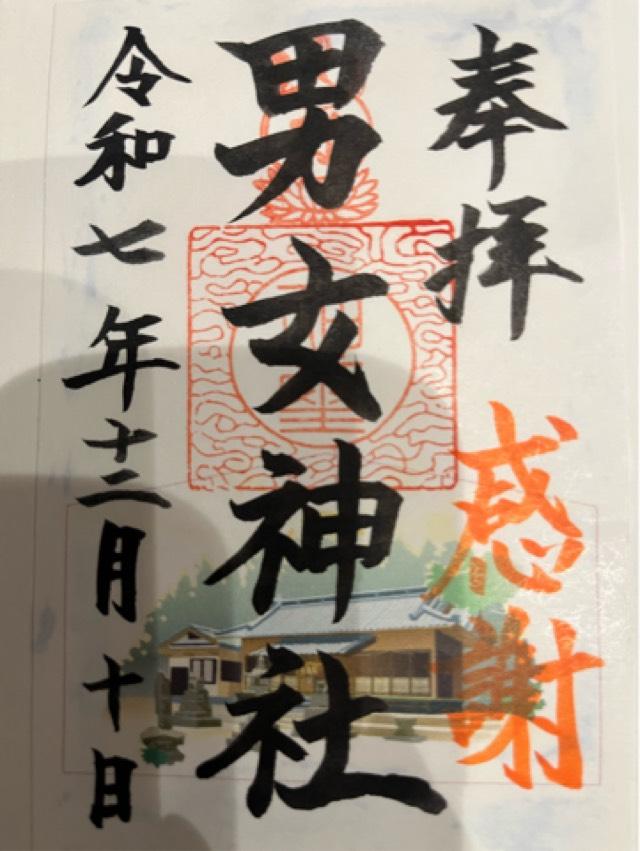 奉拝
感謝
男女神社
令和七年十二月十日